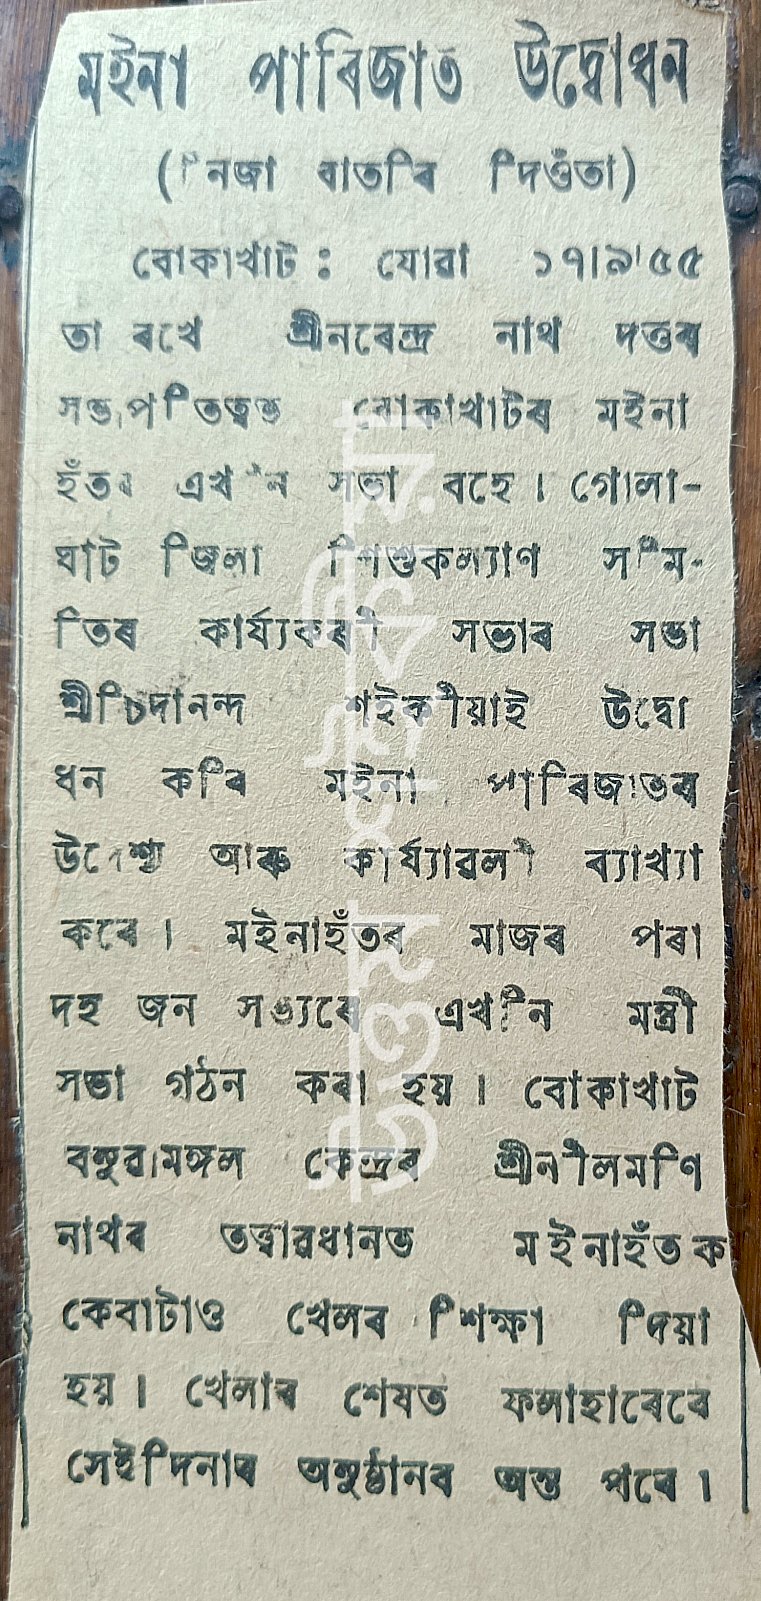 মইনা পাৰিজাত উদ্বোধন
(নিজা বাতৰি দিওঁতা)
বোকাখাট : যোৱা ১৭।৯।৫৫
তাৰিখে শ্ৰীনৰেন্দ্ৰ নাথ দত্তৰ
সভাপতিত্বত বোকাখাটৰ মইনা
হঁতৰ এখনি সভা বহে । গোলা-
ঘাট জিলা শিশুকল্যাণ সমি-
তিৰ কাৰ্য্যকৰী সভাৰ সভা
শ্ৰীচিদানন্দ শইকীয়াই উদ্বো
ধন কৰি মইনা পাৰিজাতৰ
উদ্দেশ্য আৰু কাৰ্য্যাৱলী ব্যাখ্যা
কৰে । মইনাহঁতৰ মাজৰ পৰা
দহ জন সভ্যৰে এখনি মন্ত্ৰী
সভা গঠন কৰা হয় । বোকাখাট
বস্তুৱামঙ্গল কেন্দ্ৰৰ শ্ৰীনীলমণি
নাথৰ তত্ত্বাৱধানত মইনাহঁতক
কেবাটাও খেলৰ শিক্ষা দিয়া
হয় । খেলাৰ শেষত ফলাহাৰেৰে
সেইদিনাৰ অনুষ্ঠানৰ অন্ত পৰে ।
উত্তম শইকীয়া